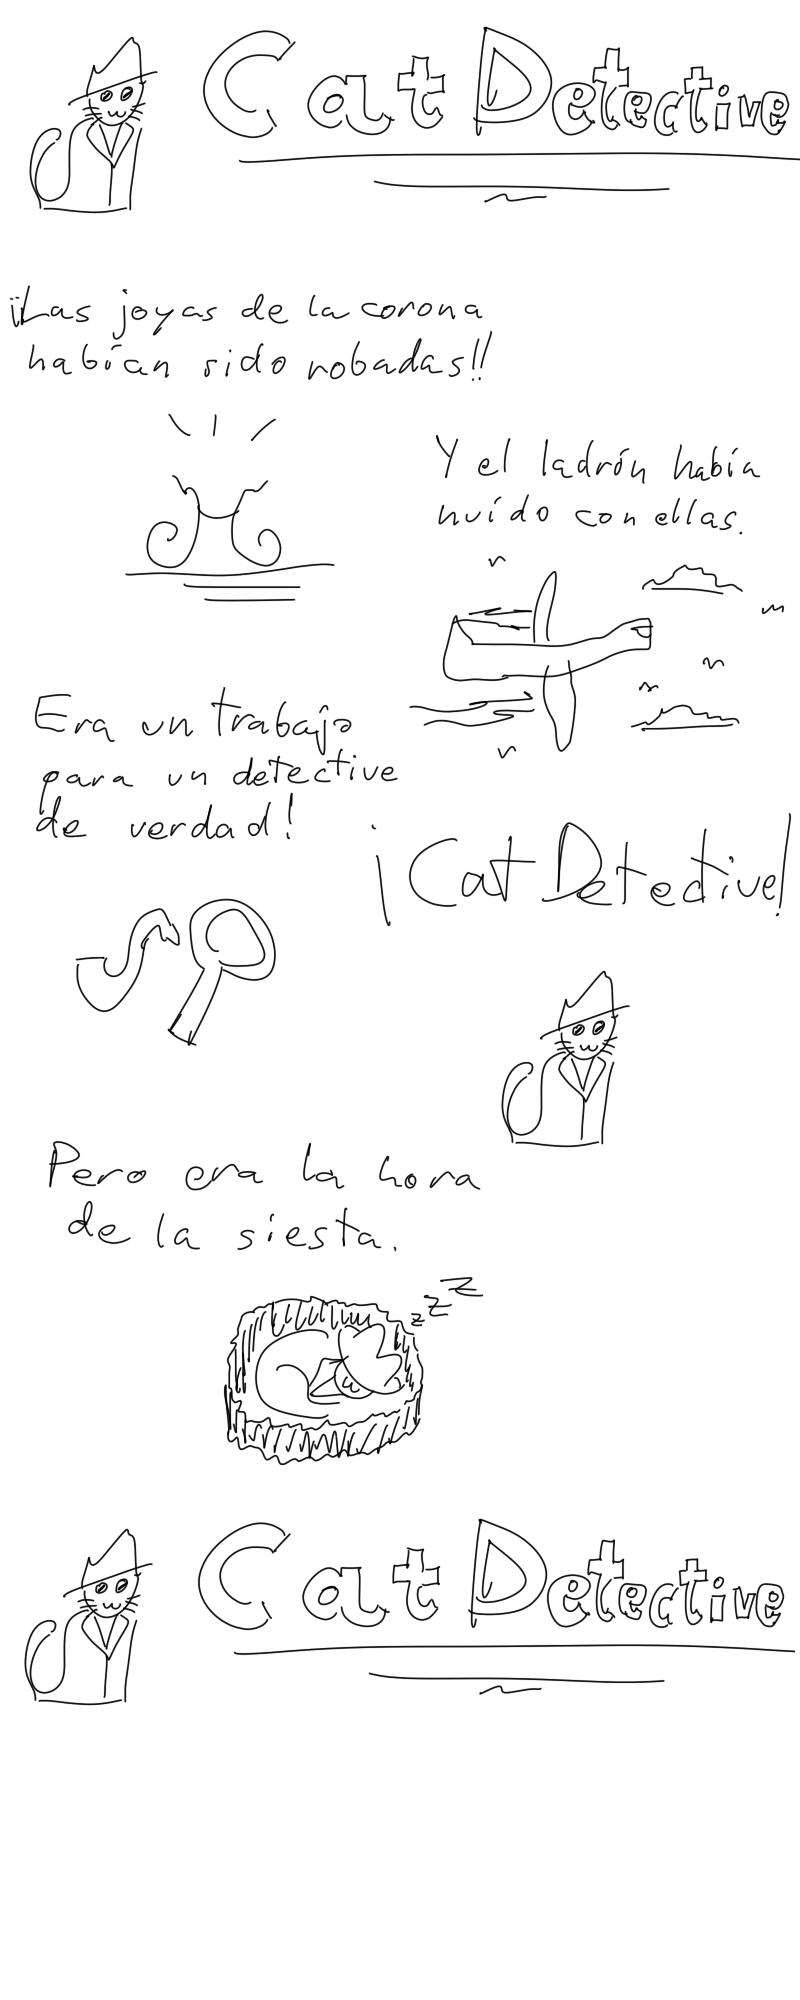 Cat Detective
¡Las joyas de la corona
habían sido robadas!!
Y el ladrón había
huído con ellas.
Era un trabajo
para un detective
de verdad!
¡Cat Detective!
Pero era la hora
de la siesta.
z z z
Cat Detective